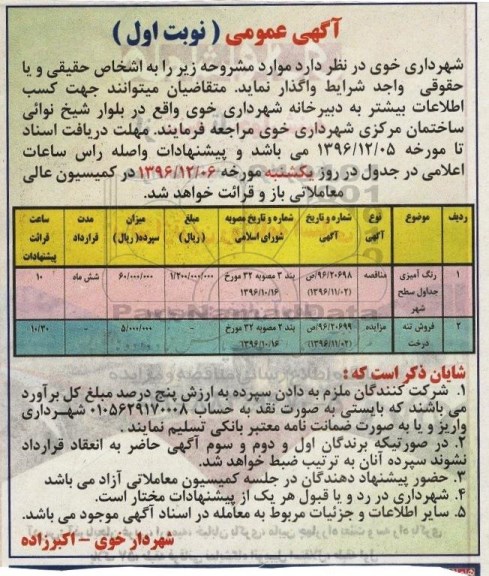 آگهی عمومی ( نوبت اول )
شهرداری خوی در نظر دارد موارد مشروحه زیر را به اشخاص حقیقی و یا
حقوقی واجد شرایط واگذار نماید. متقاضیان میتوانند جهت کسب
اطلاعات بیشتر به دبیرخانه شهرداری خوی واقع در بلوار شیخ نوائی
ساختمان مرکزی شهرداری خوی مراجعه فرمایند. مهلت دریافت اسناد
تا مورخه ۱۳۹۶/۱۲/۰۵ می باشد و پیشنهادات واصله راس ساعات
اعلامی در جدول در روز یکشنبه مورخه ۱۳۹۶/۱۲/۰۶ در کمیسیون عالی
معاملاتی باز و قرائت خواهد شد.
ردیف موضوع نوع آگهی شماره و تاریخ آگهی شماره و تاریخ مصوبه شورای اسلامی مبلغ ( ریال ) میزان سپرده( ریال ) مدت قرارداد ساعت قرائت پیشنهادات
۱ رنگ آمیزی جداول سطح شهر مناقصه ۹۶/۲۰۶۹۸/ص (۱۳۹۶/۱۱/۰۲) بند ۳ مصوبه ۳۲ مورخ ۱۳۹۶/۱۰/۱۶ ۱/۲۰۰/۰۰۰/۰۰۰ ۶۰/۰۰۰/۰۰۰ شش ماه ۱۰
۲ فروش تنه درخت مزایده ۹۶/۲۰۶۹۹/ص (۱۳۹۶/۱۱/۰۲) بند ۲ مصوبه ۳۲ مورخ ۱۳۹۶/۱۰/۱۶ - ۵/۰۰۰/۰۰۰ - ۱۰/۳۰
شایان ذکر است که :
۱. شرکت کنندگان ملزم به دادن سپرده به ارزش پنج درصد مبلغ کل برآورد
می باشند که بایستی به صورت نقد به حساب ۰۱۰۵۶۲۹۱۷۰۰۰۸ شهرداری
واریز و یا به صورت ضمانت نامه معتبر بانکی تسلیم نمایند .
۲. در صورتیکه برندگان اول و دوم و سوم آگهی حاضر به انعقاد قرارداد
نشوند سپرده آنان به ترتیب ضبط خواهد شد.
۳. حضور پیشنهاد دهندگان در جلسه کمیسیون معاملاتی آزاد می باشد
۴. شهرداری در رد و یا قبول هر یک از پیشنهادات مختار است.
۵. سایر اطلاعات و جزئیات مربوط به معامله در اسناد آگهی موجود می باشد.
شهردار خوی – اکبرزاده
ParsNamadData